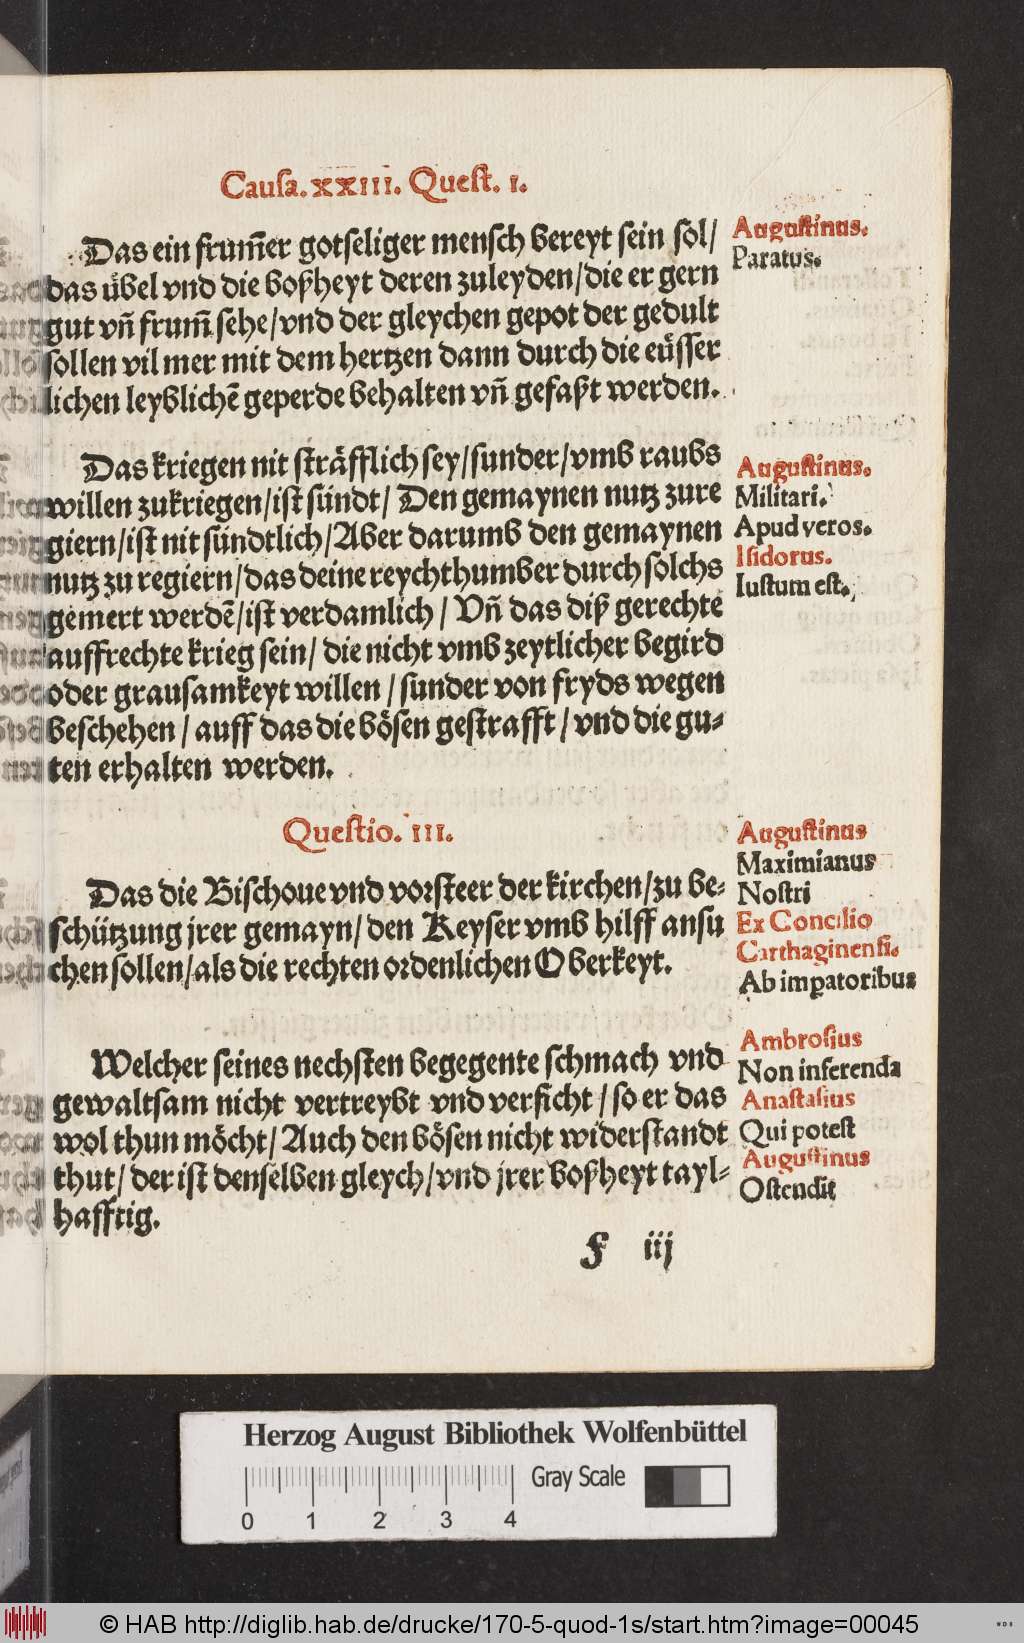 Causa. XXIII. Quest. I.
Das ein frum̃er gotseliger mensch bereyt sein sol/
das übel vnd die boßheyt deren zuleyden/die er gern
gut vñ frum̃ sehe/vnd der gleychen gepot der gedult
sollen vil mer mit dem hertzen dann durch die eüsser
lichen leyblichẽ geperde behalten vñ gefaßt werden.
Augustinus.
Paratus.
Das kriegen nit sträfflich sey/sunder/vmb raubs
willen zukriegen/ist sündt/ Den gemaynen nutz zure
giern/ist nit sündtlich/Aber darumb den gemaynen
nutz zu regiern/das deine reychthumber durch solchs
gemert werdẽ/ist verdamlich/ Vñ das diß gerechte
auffrechte krieg sein/ die nicht vmb zeytlicher begird
oder grausamkeyt willen / sunder von fryds wegen
beschehen / auff das die bösen gestrafft / vnd die gu-
ten erhalten werden.
Augustinus.
Militari.
Apud veros.
Isidorus.
Iustum est.
Questio. III.
Das die Bischoue vnd vorsteer der kirchen/zu be-
schützung jrer gemayn/ den Keyser vmb hilff ansu
chen sollen/als die rechten ordenlichen Oberkeyt.
Augustinus
Maximianus
Nostri
Ex Concilio
Carthaginensi.
Ab imꝑatoribus
Welcher seines nechsten begegente schmach vnd
gewaltsam nicht vertreybt vnd verficht / so er das
wol thun möcht/ Auch den bösen nicht widerstandt
thut/ der ist denselben gleych/vnd jrer boßheyt tayl-
hafftig.
Ambrosius
Non inferenda
Anastasius
Qui potest
Augustinus
Ostendit
f iij
Herzog August Bibliothek Wolfenbüttel
Gray Scale
0 1 2 3 4
© HAB http://diglib.hab.de/drucke/170-5-quod-1s/start.htm?image=00045